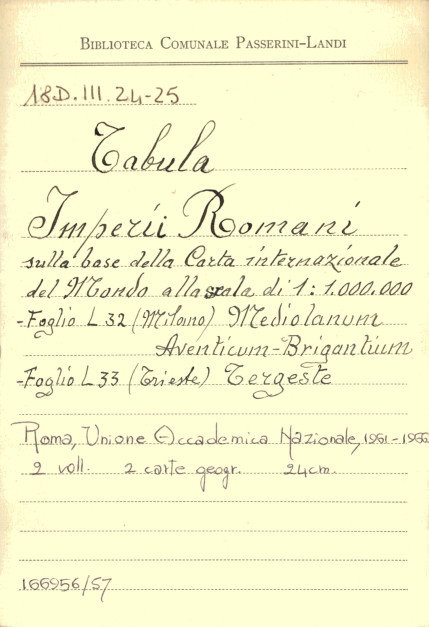 BIBLIOTECA COMUNALE PASSERINI-LANDI
18D.III.24-25
Tabula
Imperii Romani
sulla base della Carta internazionale
del Mondo alla scala di 1:1.000.000
-Foglio L 32 (Milano) Mediolanum
Aventicum-Brigantium
-Foglio L 33 (Trieste) Tergeste
Roma, Unione Accademica Nazionale, 1961-1966
2 voll. 2 carte geogr. 24cm.
166956/57